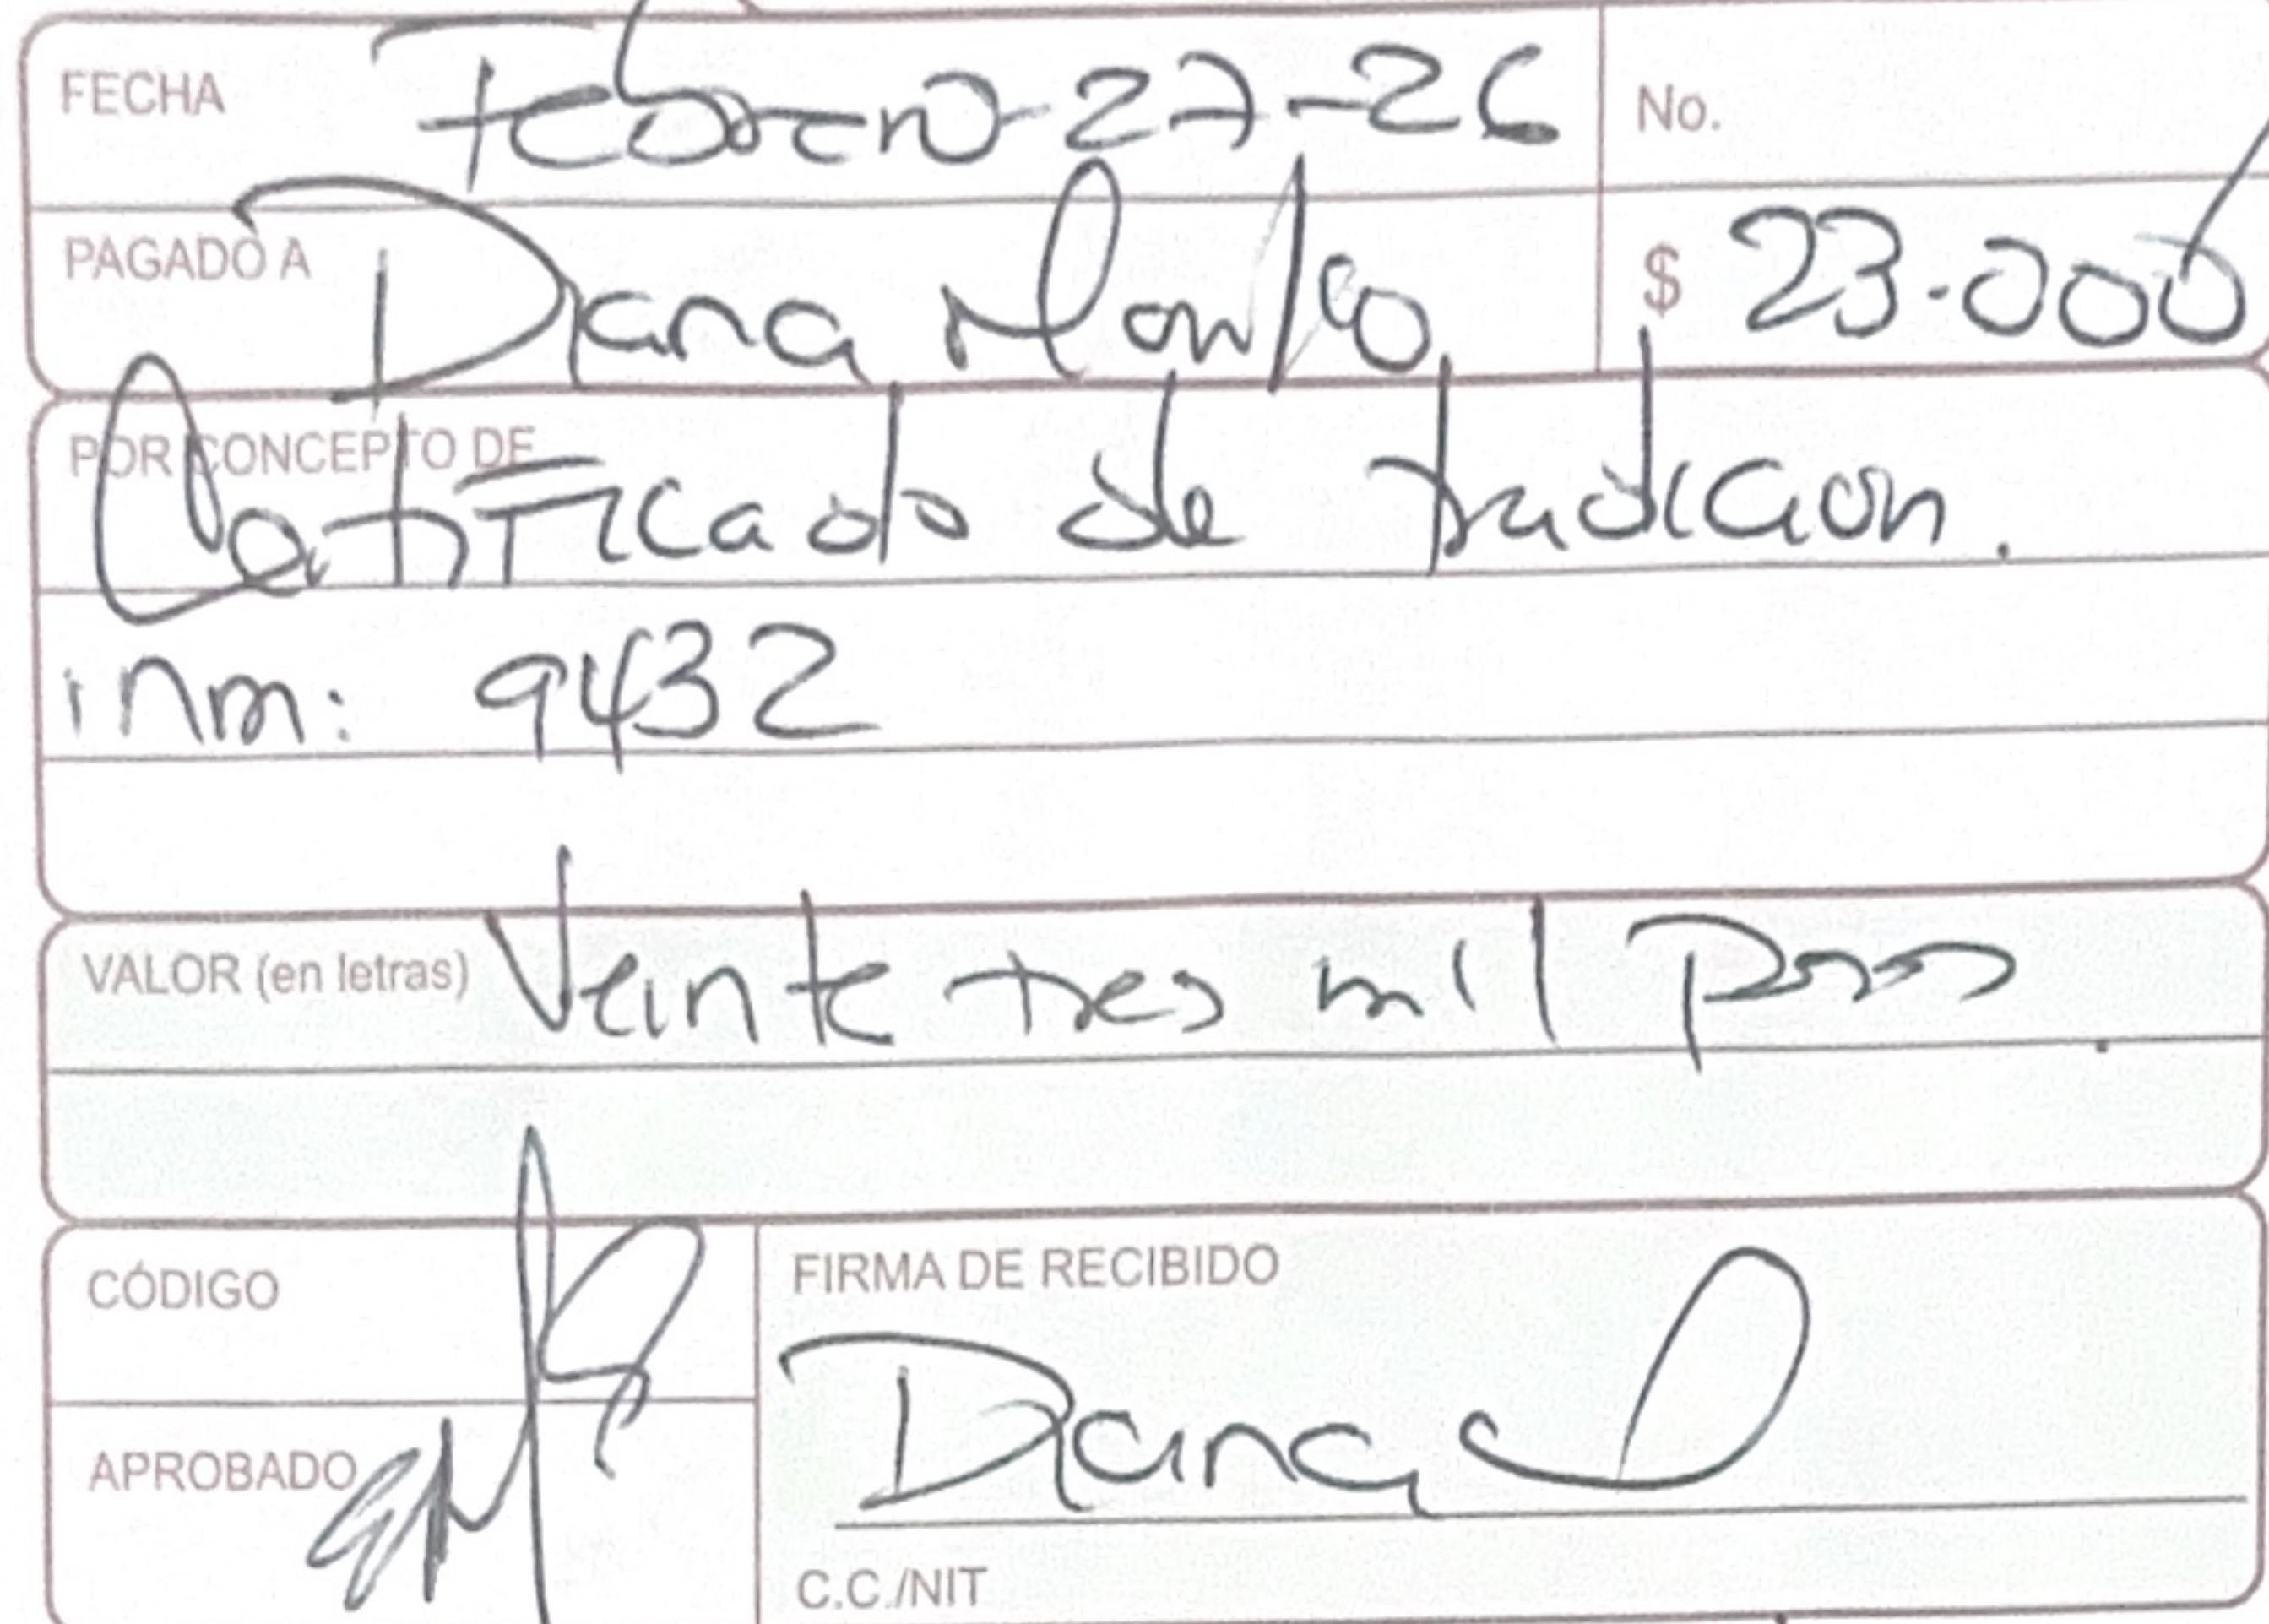 FECHA Febrero-27-26 No.
PAGADO A Diana $ 23.000
POR CONCEPTO DE Certificado de tradicion.
inm: 9432
VALOR (en letras) Veinte tres mil pesos.
CÓDIGO FIRMA DE RECIBIDO
APROBADO Diana
C.C./NIT